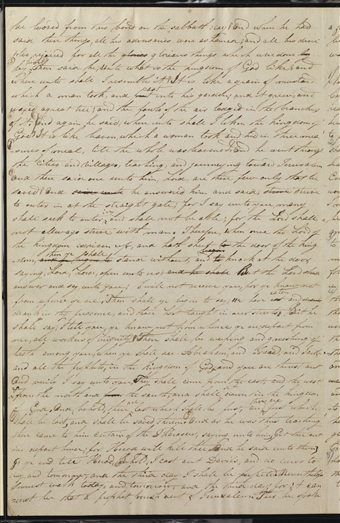 be loosed from this bond on the sabbath day and when he had
said these things, all his adversaries were ashamed, and all his deci
rejoiced for all the glorious things which were done by
him Then said he, unto what is the kingdom of God like, and
where unto shall I resemble it It is like a grain of mustard
which a man took, and cast into his garden, and it grew, and
waxed a great tree, and the fowls of the air lodged in the branches
of it. And again he said, where unto shall I liken the kingdom of
God It is like leaven, which a woman took and hid in three mea
sures of meal, till the whole was leavened And he went through
the cities and villages, teaching, and journeying toward Jerusalem
and there said one unto him, Lord, are there few only that be
saved and he answered him and said, strive
to enter in at the straight gate, for I say unto you, many
shall seek to enter in, and shall not be able, for the Lord shall
not always strive with man, Therefore, when once the Lord of
the kingdom is risen up, and hath shut the door of the king
dom, then ye shall stand without, and knock at the door
saying, Lord, Lord, open unto us But the Lord shall
answer and say unto you, I will not
from whence ye are Then shall ye begin to say, we have eaten and
drank in thy presence, and thou hast taught in our streets, But he
shall say I tell you, ye know not from whence ye are, depart from
me, all workers of iniquity There shall be weeping and gnashing of
teeth among you, when ye shall see Abraham, and Isaac, and Jacob
and all the prophets, in the kingdom of God, and you are thrust out
And verily I say unto you They shall come from the east, and the west
from the north and the south, and shall sit down in the kingdom
of God And, behold, there are last which shall be first, and there are first which
shall be last, and shall be saved therein and as he was thus teaching
there came to him certain of the Pharisees, saying unto him, Get thee out
and depart hence, for Herod will kill thee and he said unto them
Go ye and tell Herod, behold, I cast out Devils and do cures to
day and tomorrow, and the third day I shall be perfected
I must walk to day, and tomorrow, and the third day, for it can
not be that a prophet perish out of Jerusalem This he spake